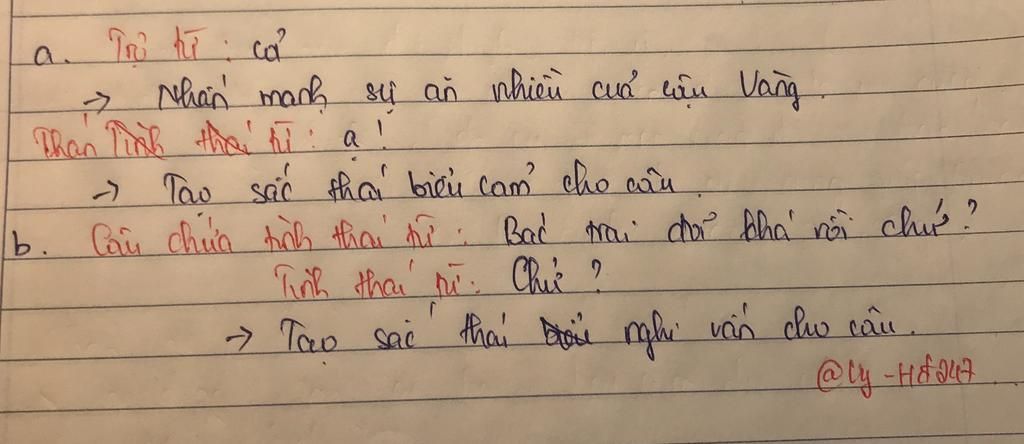 a. Trợ từ : cả
→ Nhấn mạnh sự ăn nhiều của cậu Vàng.
Thán Tình thái từ : ạ !
→ Tạo sắc thái biểu cảm cho câu.
b. Câu chứa tình thái từ : Bác trai đã khá rồi chứ ?
Tình thái từ : Chứ ?
→ Tạo sắc thái nghi vấn cho câu.
@Ly-H8247